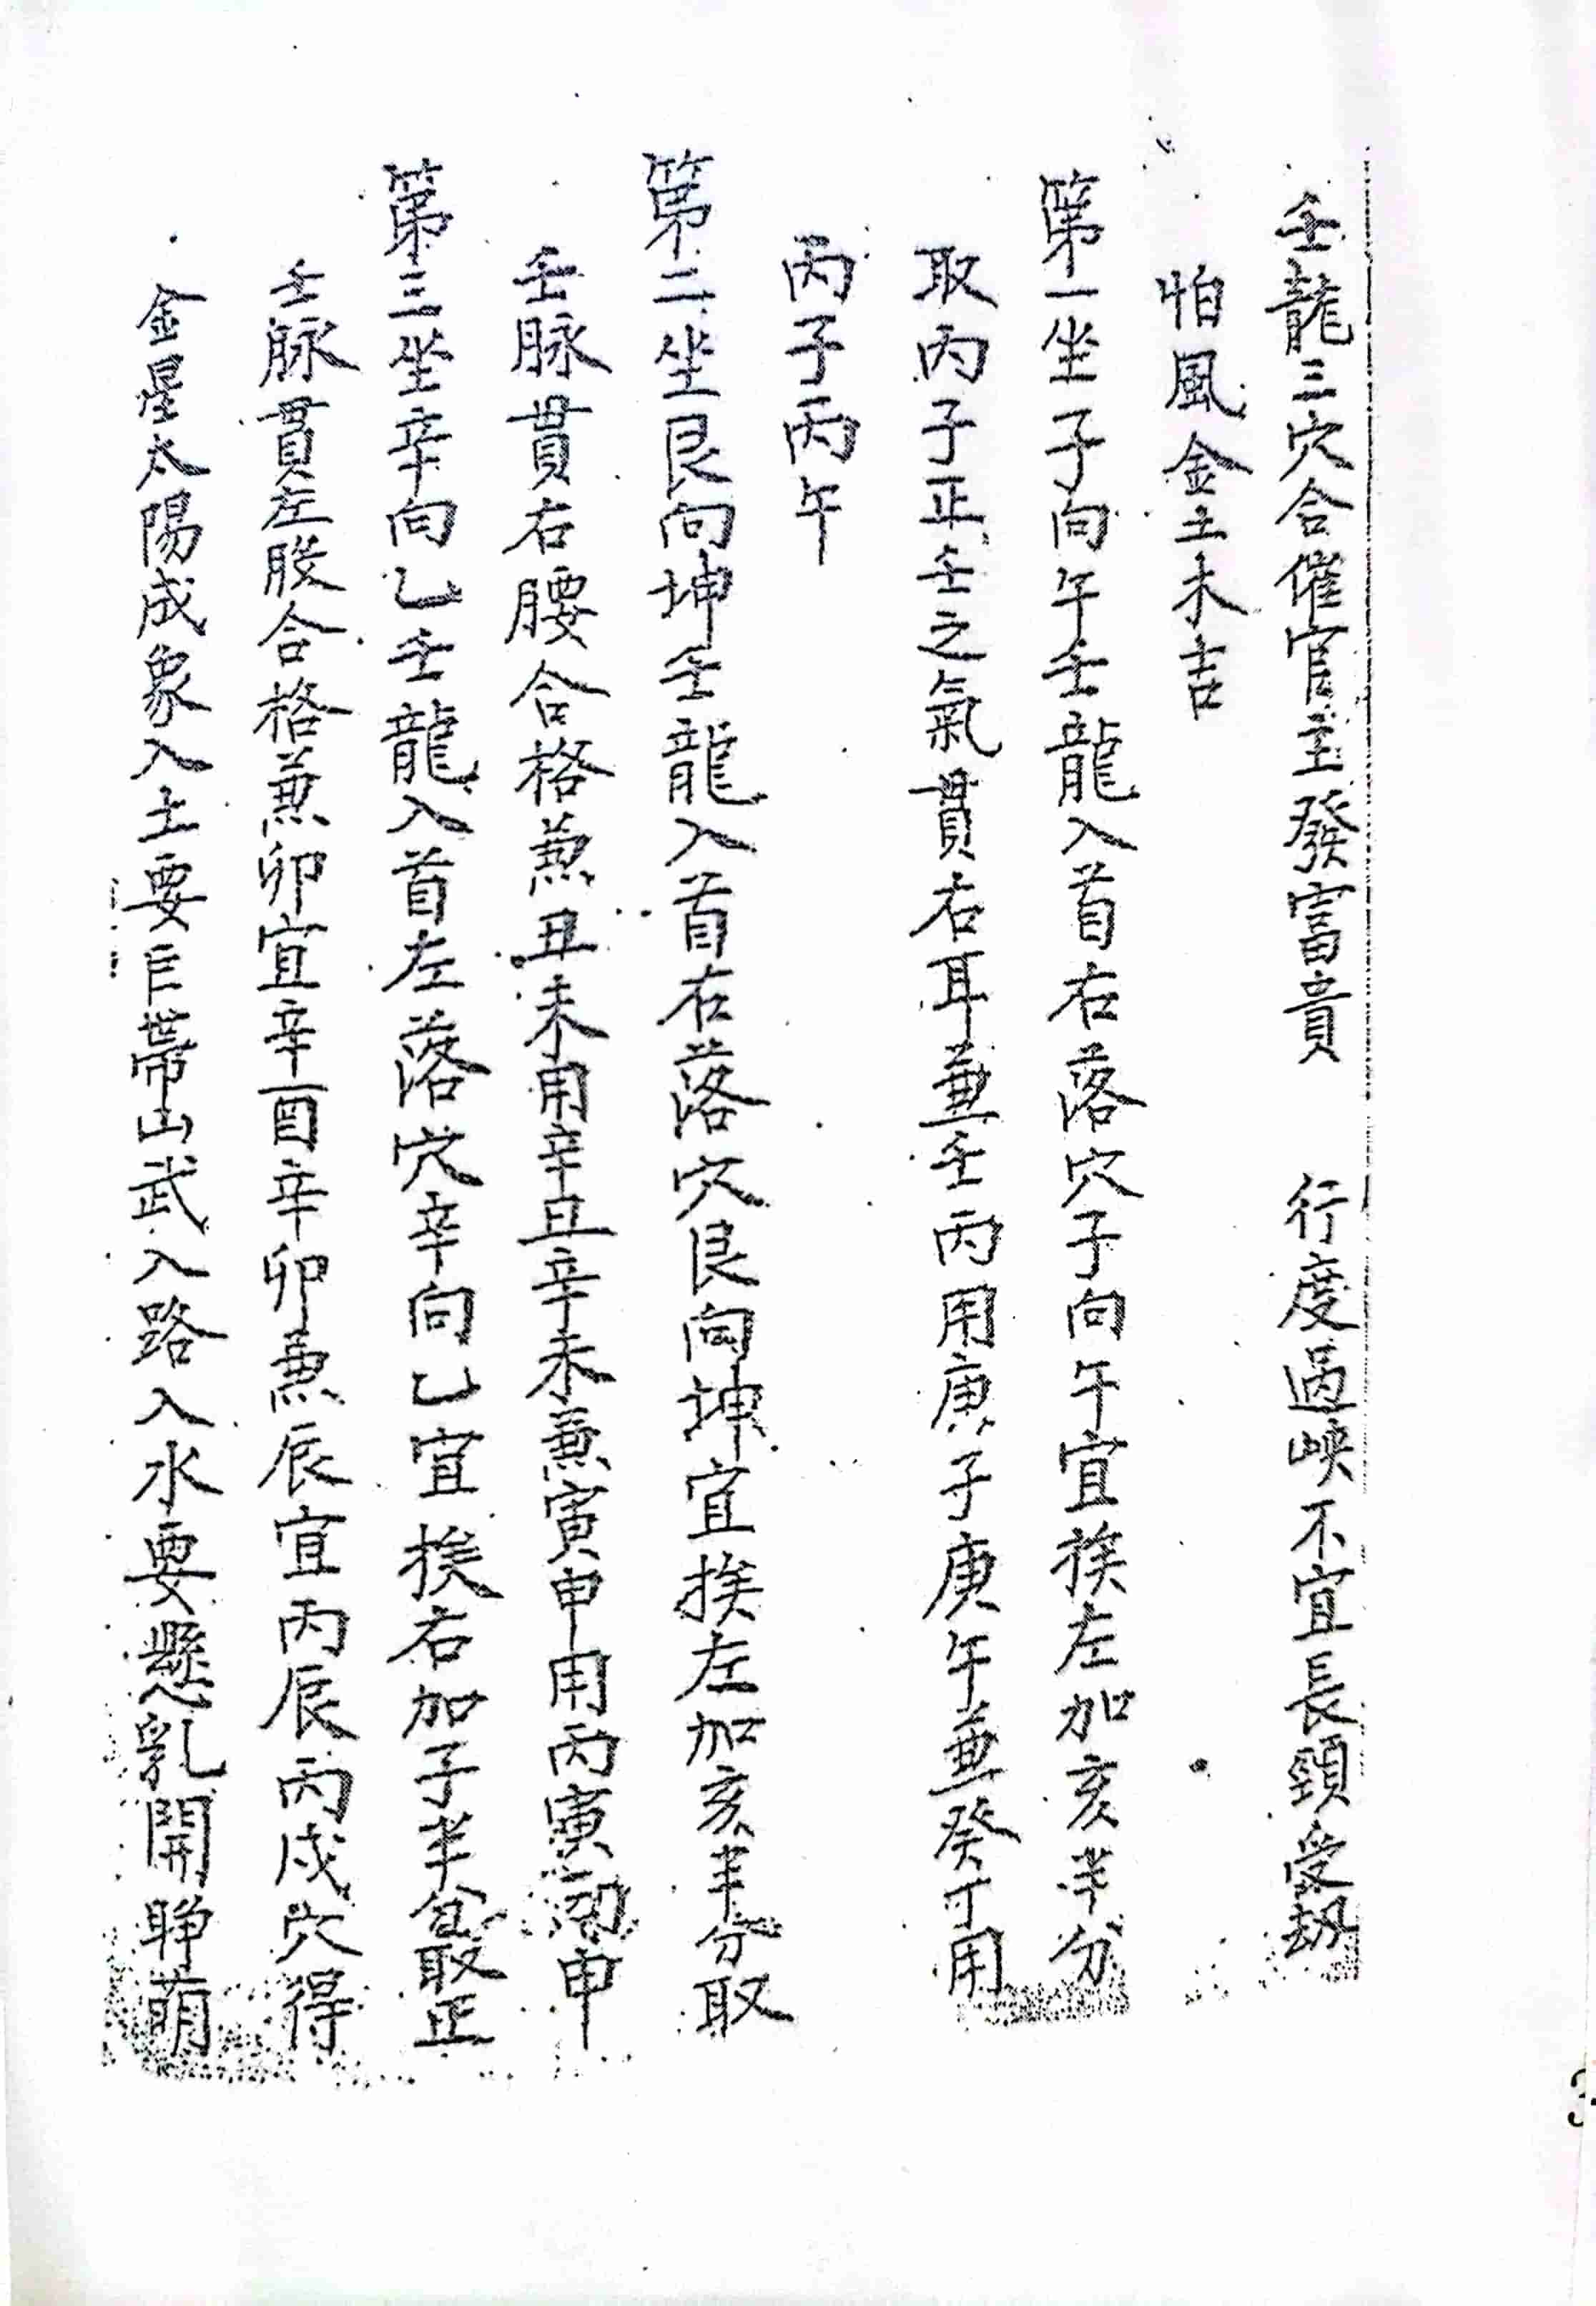 壬龍三穴合催官主發富貴 行度過峽不宜長頸受劫
怕風金土木吉
第一坐子向午壬龍入首右落穴子向午宜挨左加亥半分
取丙子正壬之氣貫右耳兼壬丙用庚子庚午兼癸丁用
丙子丙午
第二坐艮向坤壬龍入首右落穴艮向坤宜挨左加亥半分取
壬脉貫右腰合格兼丑未用辛丑辛未兼寅申用丙寅丙申
第三坐辛向乙壬龍入首左落穴辛向乙宜挨右加子半分取正
壬脉貫左腰合格兼卯宜辛酉辛卯兼辰宜丙辰丙戌穴得
金星太陽成象入土要帶山武入路入水要懸乳開睜萌
3